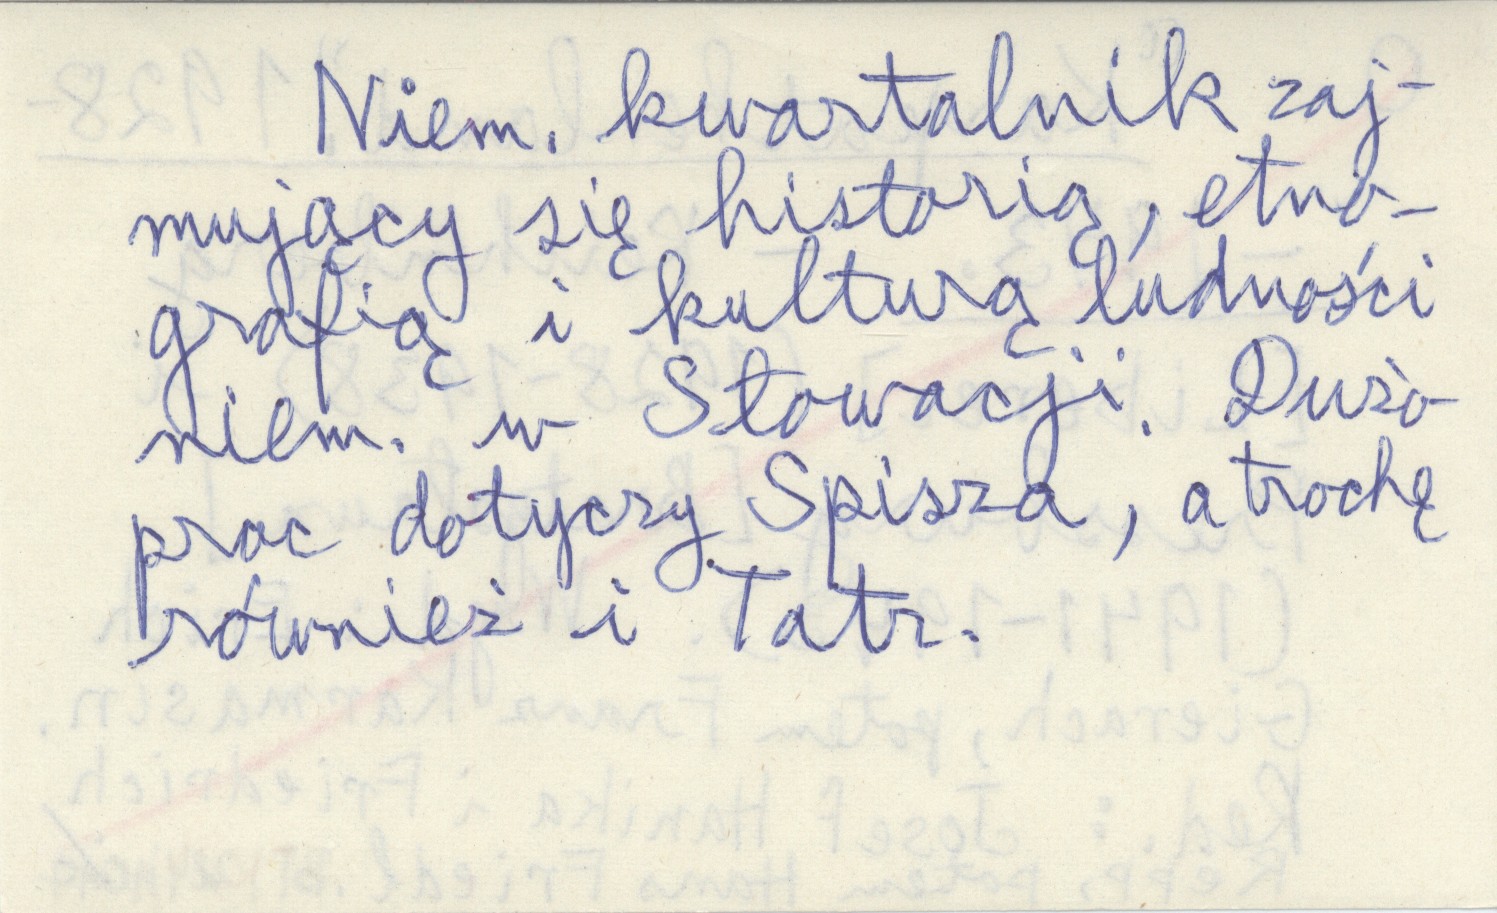 Niem. kwartalnik zaj-
mujący się historią, etno-
grafią i kulturą ludności
niem. w Słowacji. Dużo
prac dotyczy Spisza, a trochę
również i Tatr.